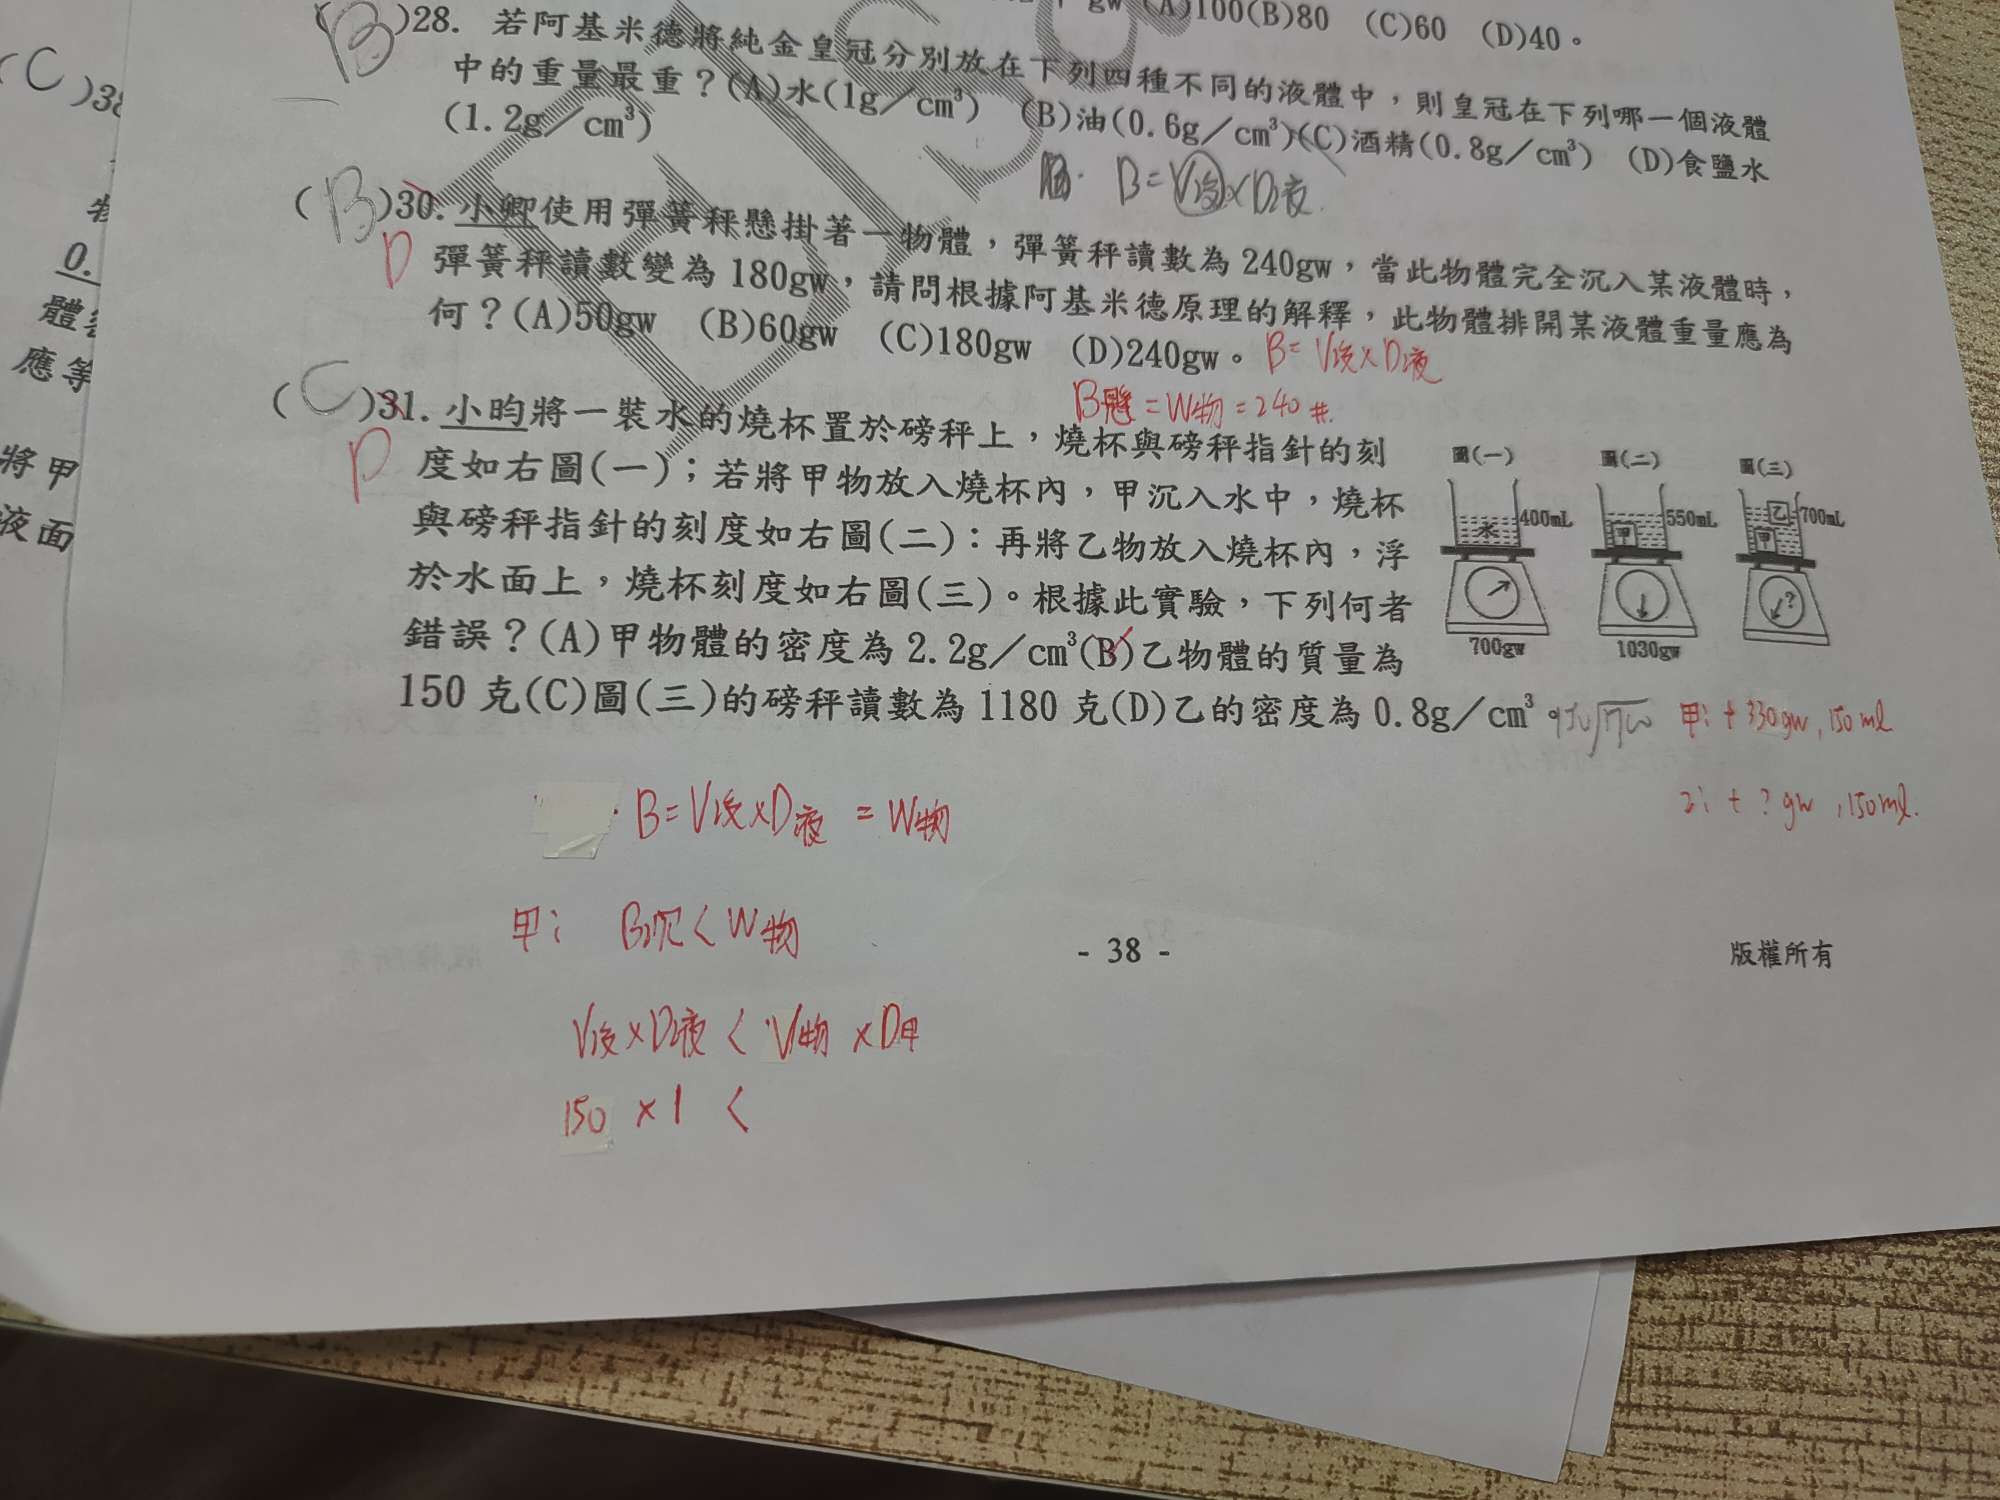 gw (A)100(B)80 (C)60 (D)40。
(B)28. 若阿基米德將純金皇冠分別放在下列四種不同的液體中,則皇冠在下列哪一個液體
中的重量最重?(A)水(1g/cm³) (B)油(0.6g/cm³)(C)酒精(0.8g/cm³) (D)食鹽水
(1.2g/cm³)
B=V後×D液
(B)30. 小卿使用彈簧秤懸掛著一物體,彈簧秤讀數為240gw,當此物體完全沉入某液體時,
D 彈簧秤讀數變為180gw,請問根據阿基米德原理的解釋,此物體排開某液體重量應為
何?(A)50gw (B)60gw (C)180gw (D)240gw。 B=V後×D液
B懸=W物=240#.
(C)31. 小昀將一裝水的燒杯置於磅秤上,燒杯與磅秤指針的刻
D 度如右圖(一);若將甲物放入燒杯內,甲沉入水中,燒杯
與磅秤指針的刻度如右圖(二):再將乙物放入燒杯內,浮
於水面上,燒杯刻度如右圖(三)。根據此實驗,下列何者
錯誤?(A)甲物體的密度為2.2g/cm³(B)乙物體的質量為
150克(C)圖(三)的磅秤讀數為1180克(D)乙的密度為0.8g/cm³。
圖(一) 圖(二) 圖(三)
水 400mL 甲 550mL 乙 甲 700mL
?
700gw 1030gw
甲: + 330gw, 150ml
乙: + ? gw, 150ml.
B=V後×D液 = W物
甲: B沉<W物
V後×D液 < V物×D甲
150 ×1 <
- 38 -
版權所有
(C)38
0.
應等
將甲
液面